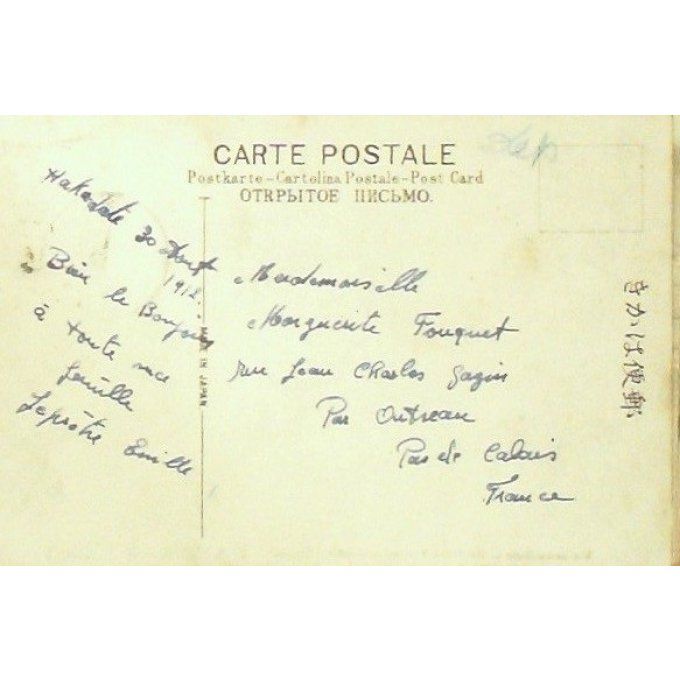 CARTE POSTALE
Postkarte-Cartolina Postale-Post Card
ОТКРЫТОЕ ПИСЬМО.
Hakodate 30 Aout
1912.
Bien le Bonjour
à toute ma
famille
Leprêtre Emille
MADE IN JAPAN
Mademoiselle
Marguerite Fouquet
rue Jean Charles Gazin
Par Outreau
Pas de Calais
France
きかは便郵